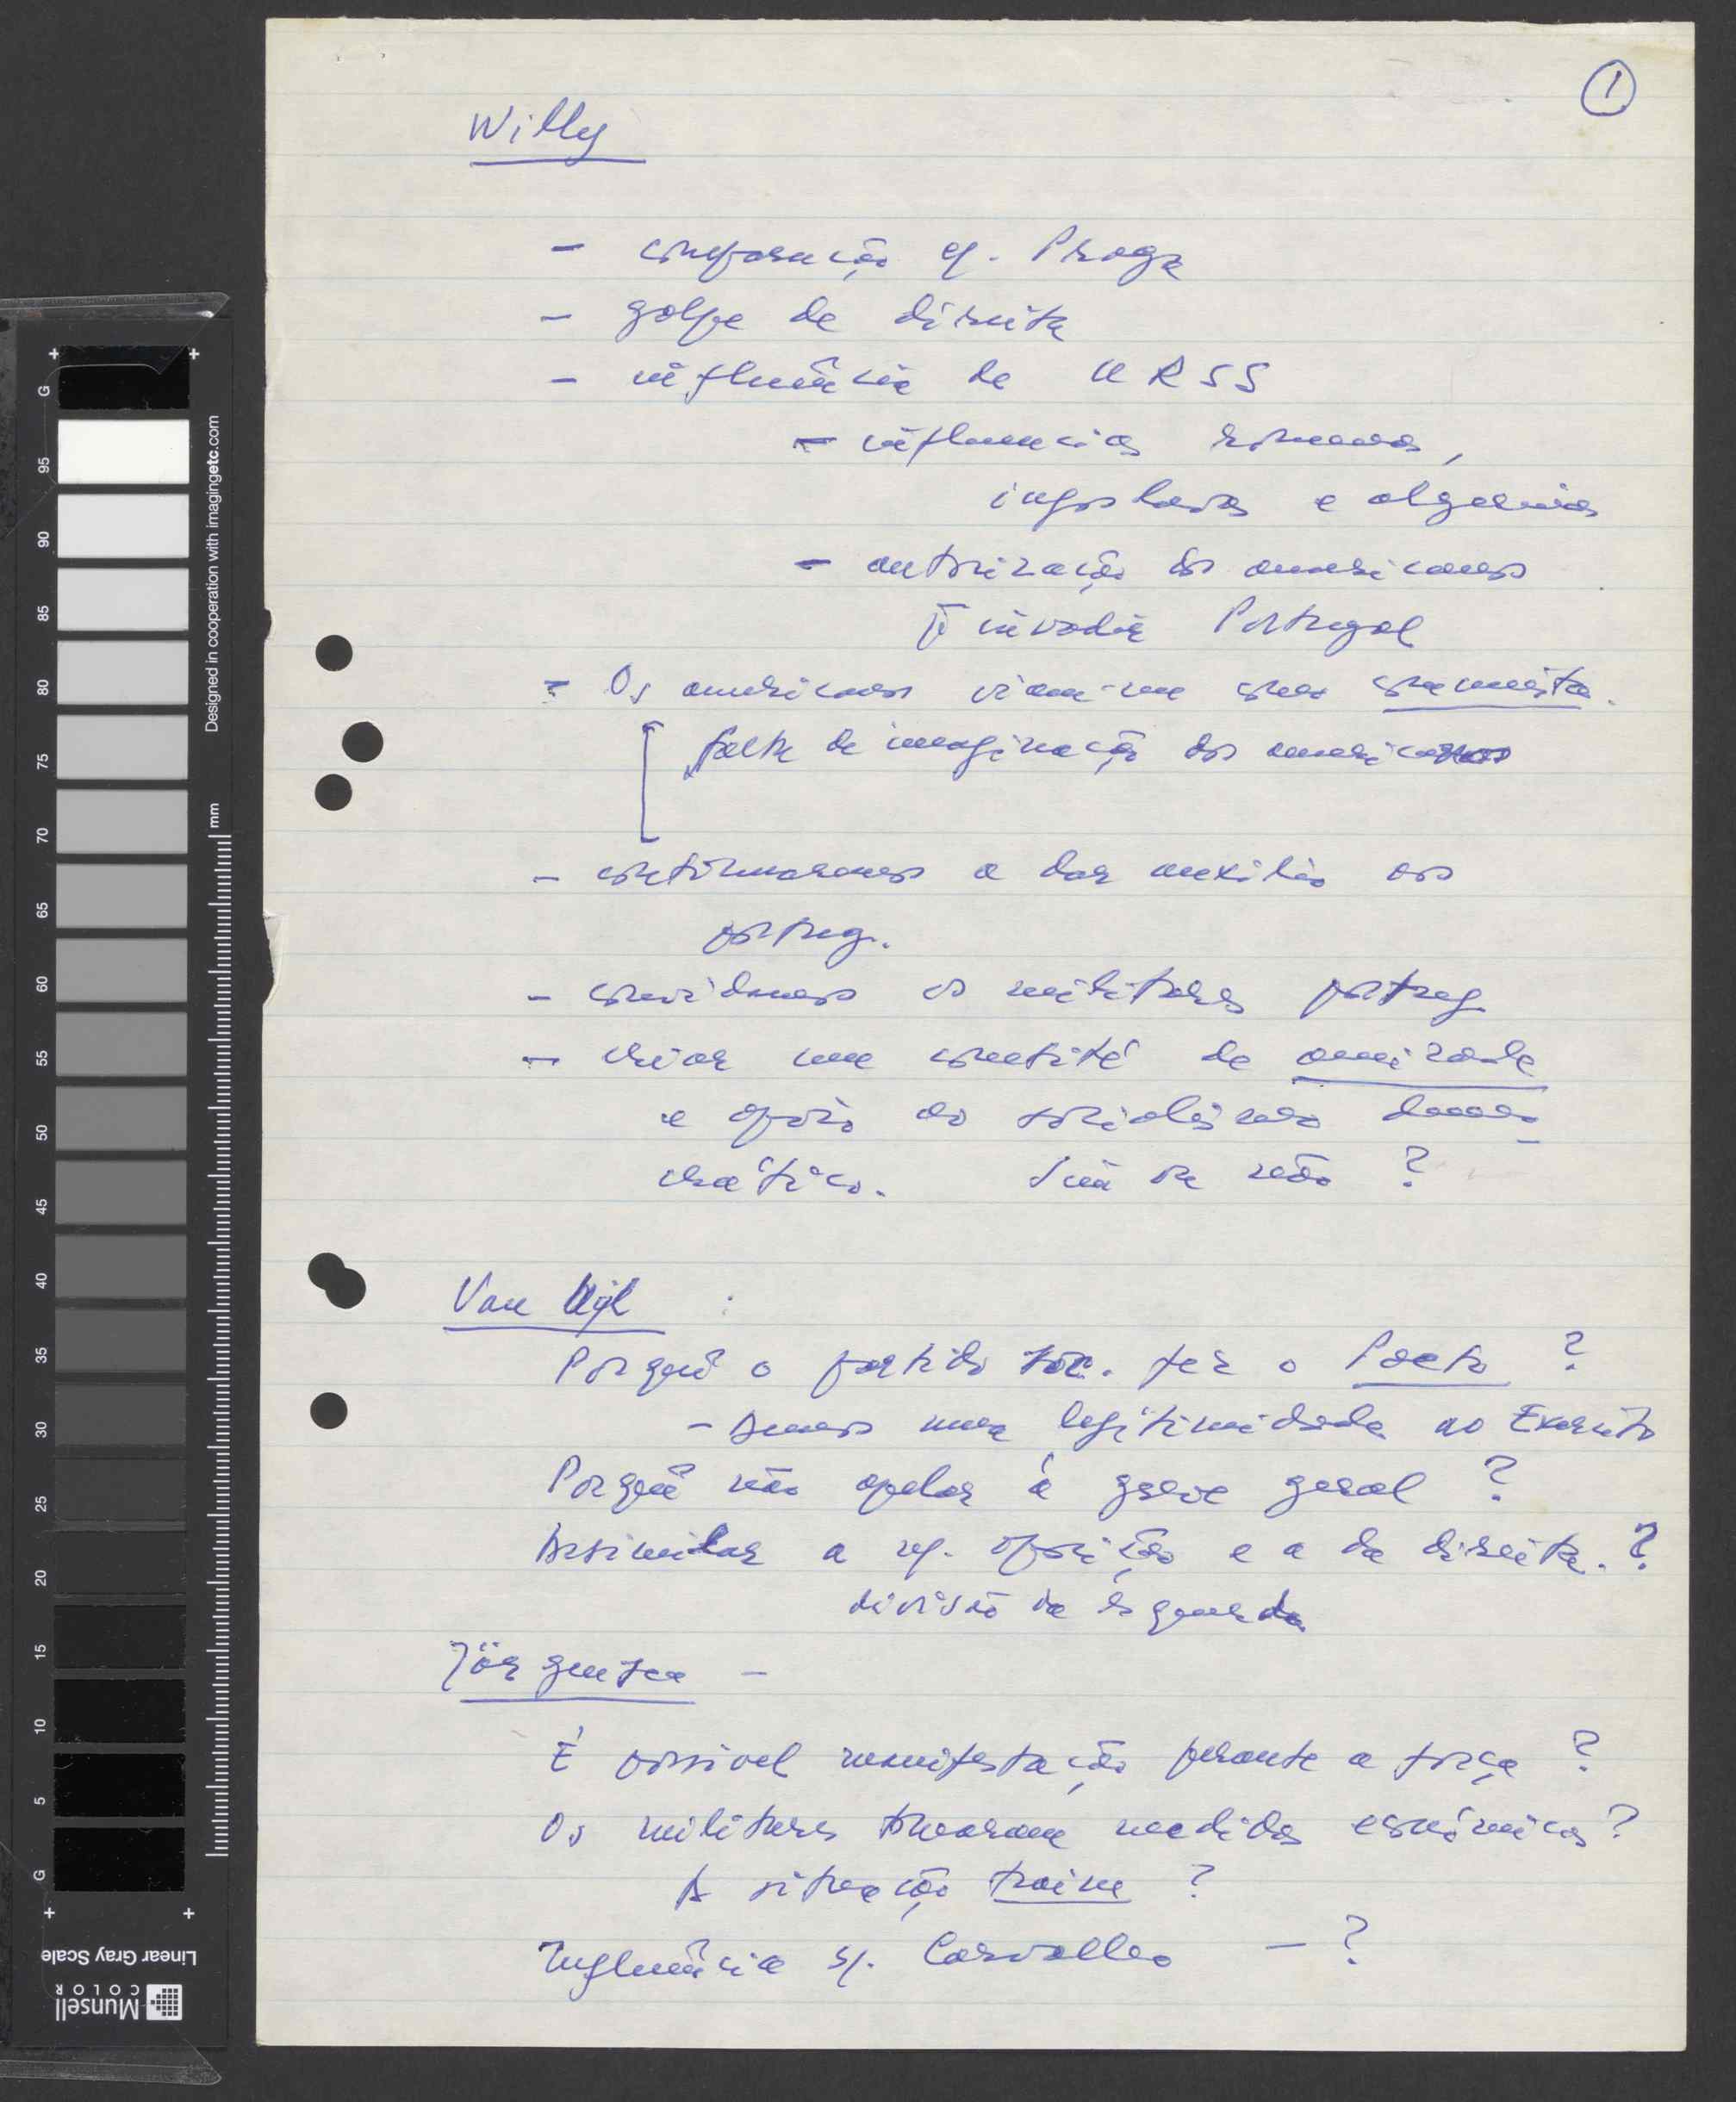 1
Willy
- comparação c/. Praga
- golpe de direita
- influência da URSS
- influencias romena,
iugoslava e algerina
- autorização dos americanos
p̄ invadir Portugal
- Os americanos viam-me como comunista.
falta de imaginação dos americanos
- continuaremos a dar auxílio aos
portug.
- convidamos os militares portug
- criar um comité de amizade
e apoio ao socialismo demo_
crático. Sim ou não ?
Van Uyl :
Porquê o partido soc. fez o Pacto ?
- Demos uma legitimidade ao Exército
Porquê não apelar à greve geral ?
Assimilar a n/. oposição e a da direita. ?
divisão da esquerda
Jörgensen -
É possivel manifestação perante a força ?
Os militares tomaram medidas económicas ?
A situação traine ?
Influência s/. Carvalho - ?
Designed in cooperation with imagingetc.com
mm
G 95 90 85 80 75 70 65 60 55 50 45 40 35 30 25 20 15 10 5 G
Linear Gray Scale
Munsell
COLOR